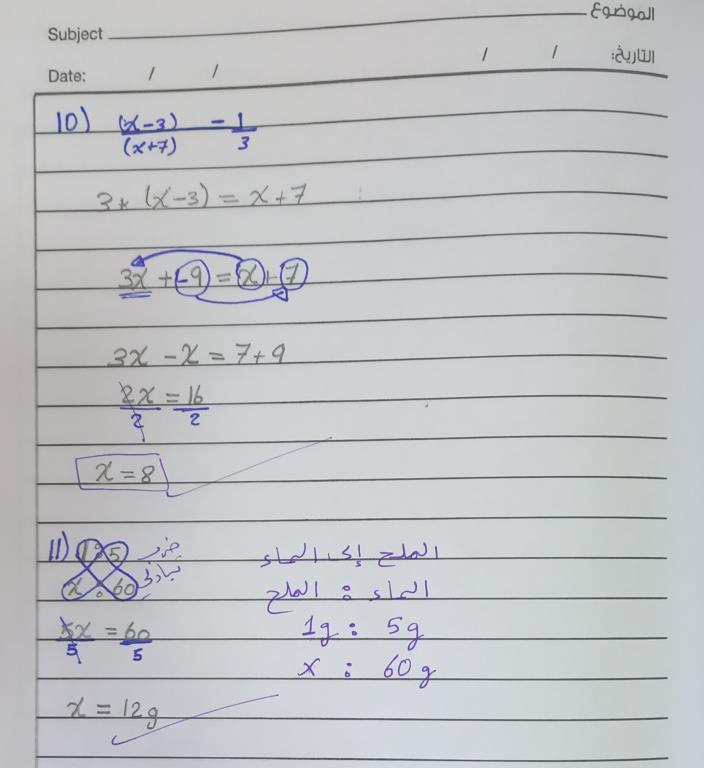 الموضوع
Subject
التاريخ: / /
Date: / /
10) (x-3)/(x+7) - 1/3
3* (x-3) = x+7
3x + -9 = x + 7
3x - x = 7+9
2x/2 = 16/2
x = 8
11) 1 : 5 ضرب
x : 60 تبادلي
5x/5 = 60/5
x = 12g
الملح إلى الماء
الماء : الملح
1g : 5g
x : 60g